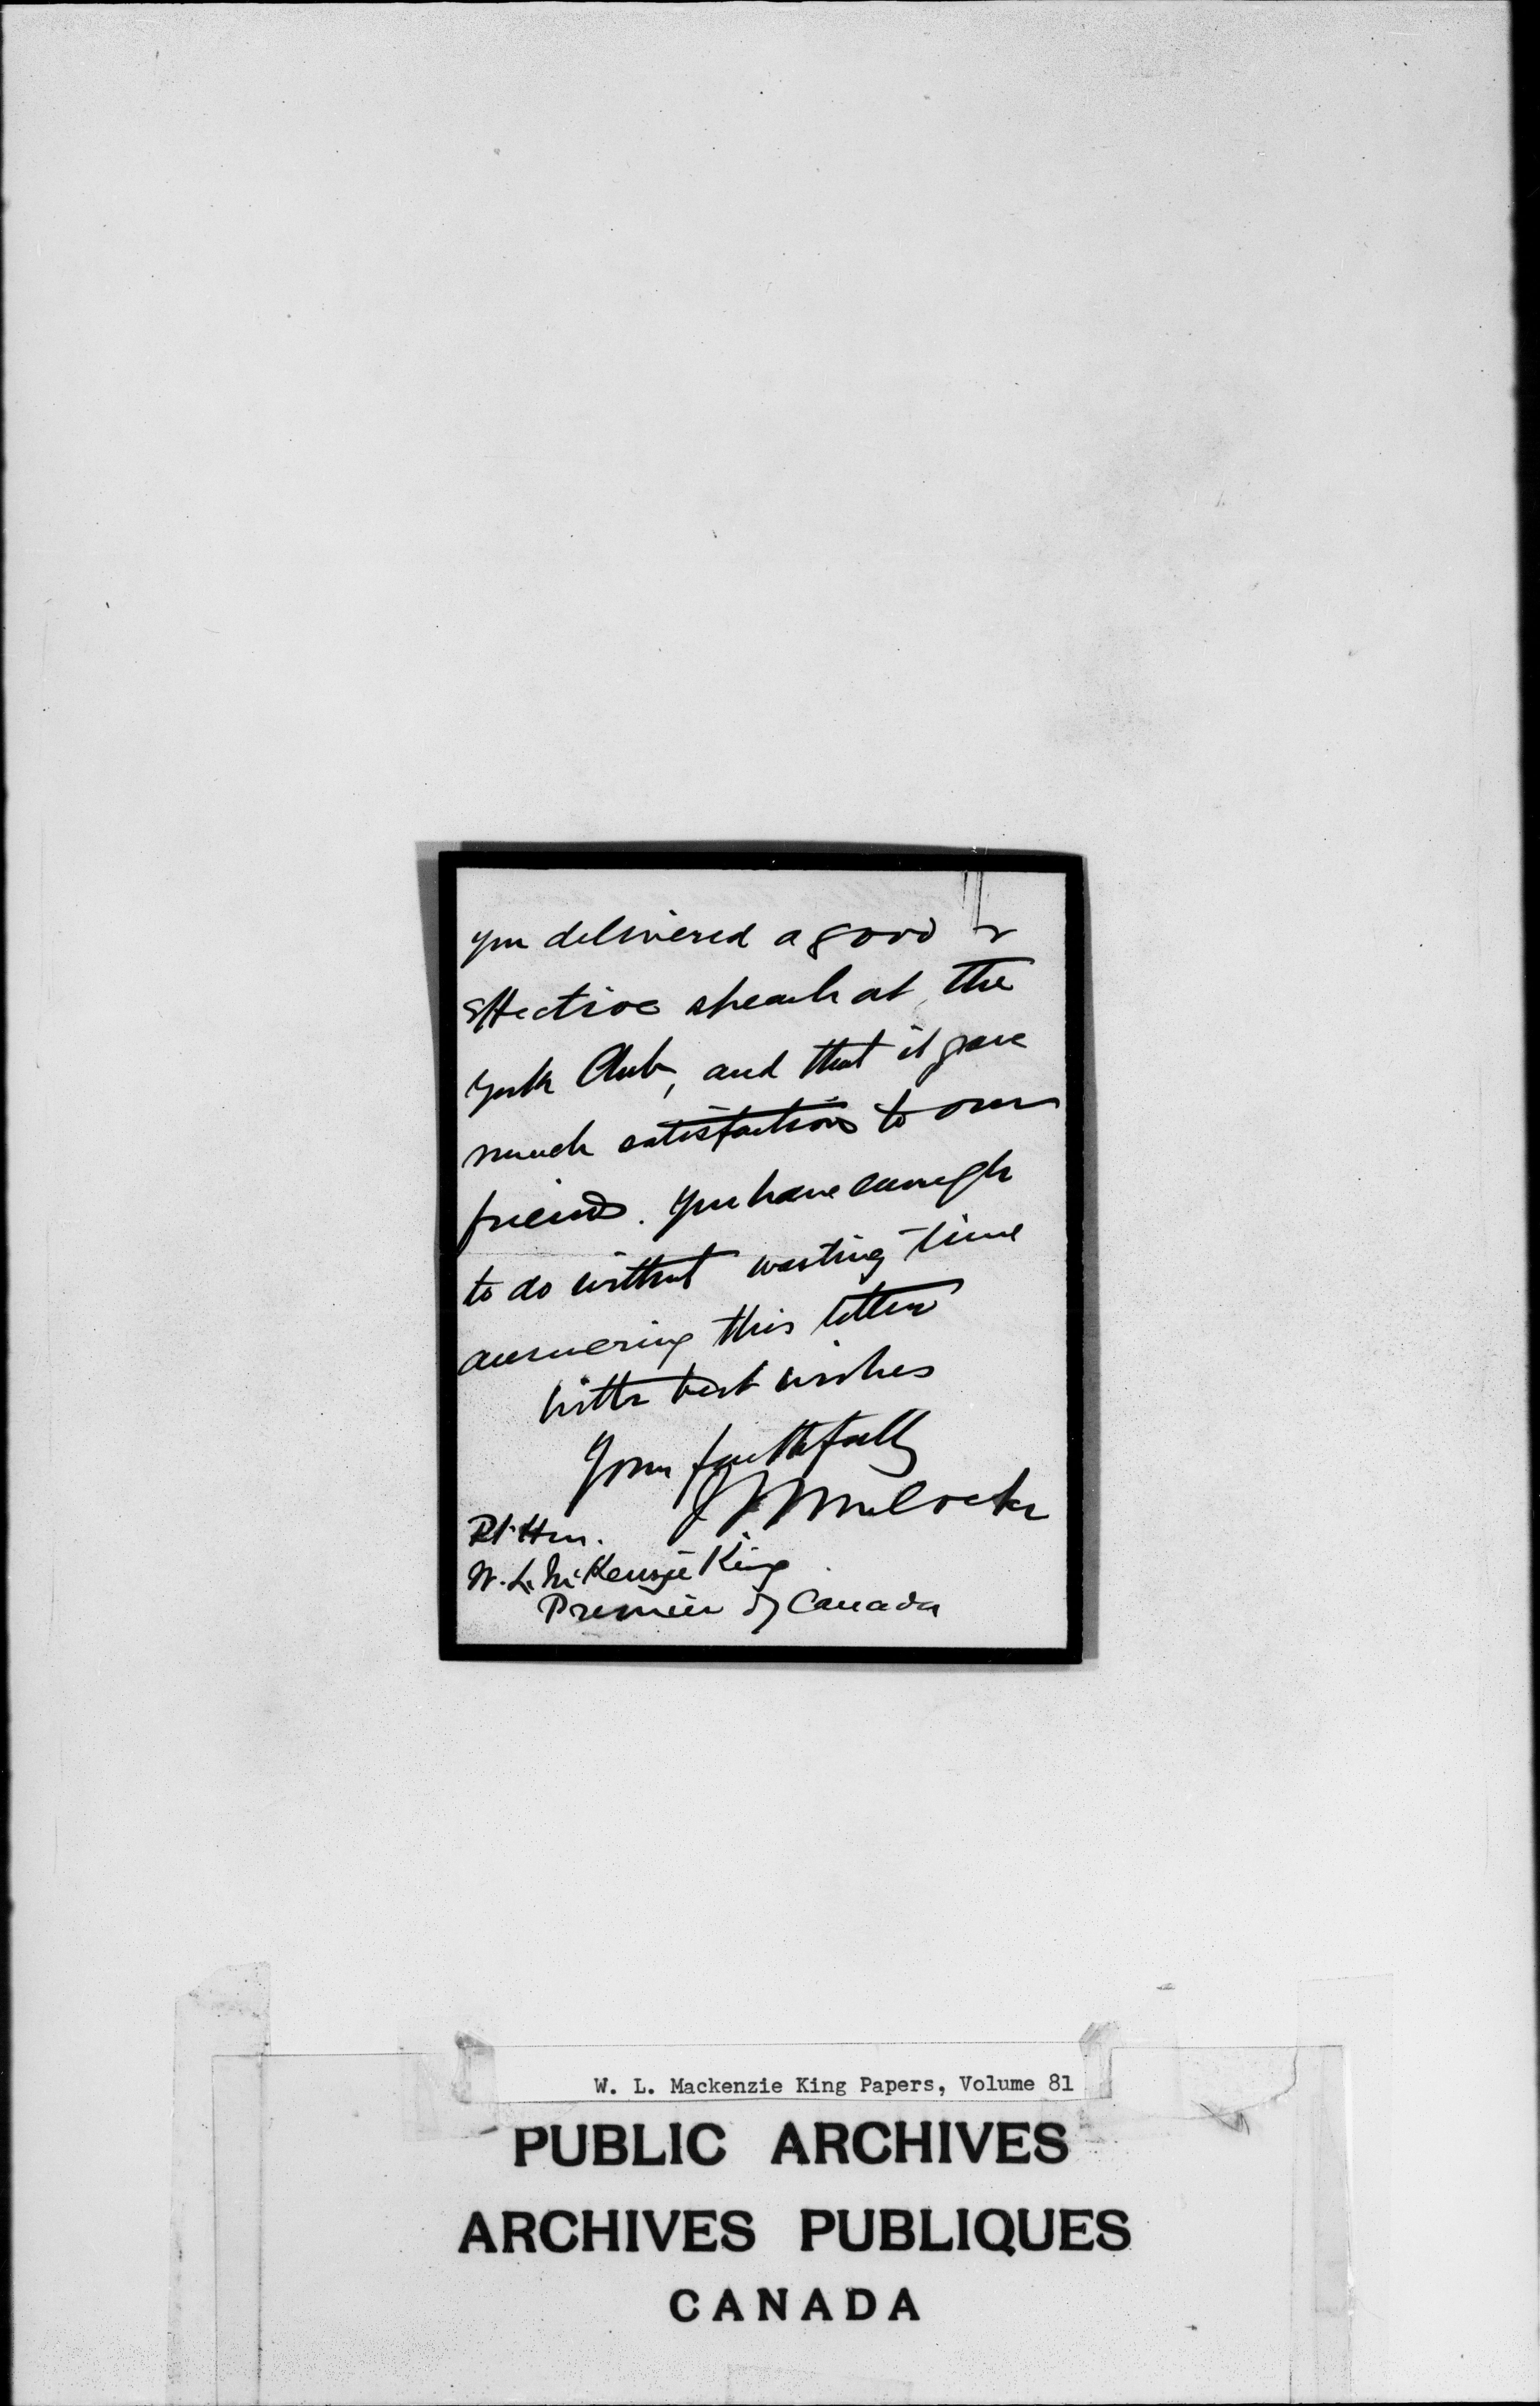 you delivered a good &
effective speech at the
York Club, and that it gave
much satisfaction to our
friends. You have enough
to do without wasting time
answering this letter
With best wishes
Yours faithfully
Mulock
Rt. Hon.
W. L. McKenzie King
Premier of Canada
W. L. Mackenzie King Papers, Volume 81
PUBLIC ARCHIVES
ARCHIVES PUBLIQUES
CANADA